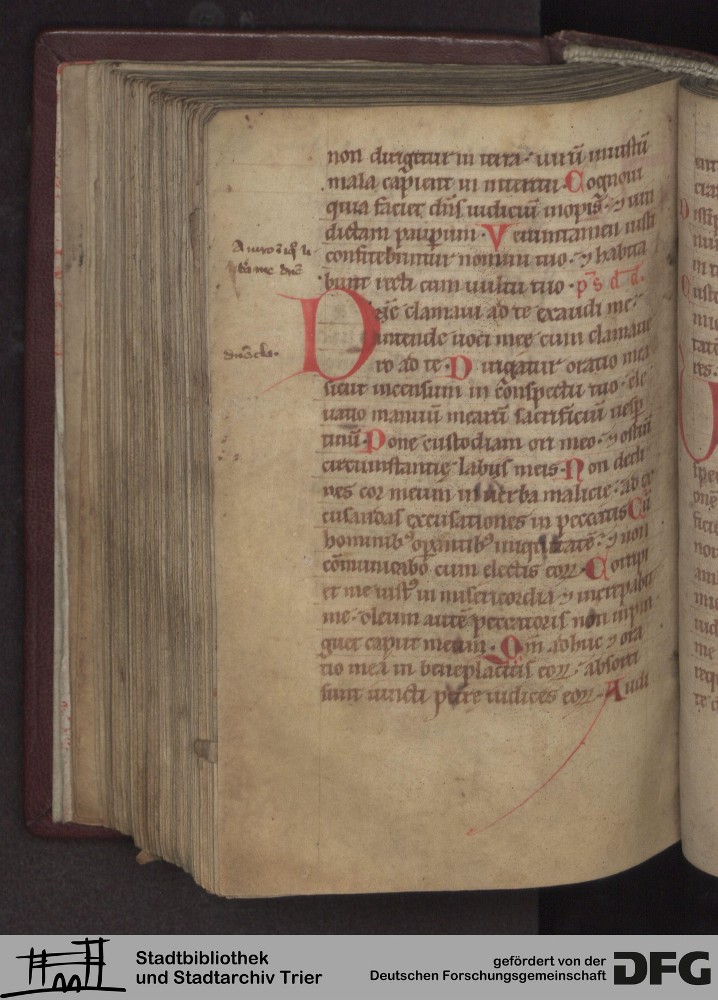 non dirigetur in terra· uirū iniustū
mala capient in interitu· Cognoui
quia faciet dn̄s iudiciū inopis· ⁊ uin
dictam pauperum· Veruntamen iusti
confitebuntur nomini tuo· ⁊ habita
bunt recti cum uultu tuo· ps̄ d̄d̄
Dn̄e clamaui ad te exaudi me·
intende uoci mee cum clamaue
ro ad te· Dirigatur oratio mea
sicut incensum in cōspectu tuo· ele
uatio manuū mearū sacrificiū uesp
tinū· Pone custodiam ori meo· ⁊ ostiū
circumstantię labiis meis· Non decli
nes cor meum in uerba malicie· ad ex
cusandas excusationes in peccatis Cū
hominib' opantib' iniquitatē· ⁊ non
cōmunicabo cum electis eoꝝ· Corripi
et me iust' in misericordia ⁊ increpabit
me· oleum autē peccatoris non inpin
guet caput meum· Qm̄ adhuc ⁊ ora
tio mea in beneplacitis eoꝝ· absorti
sunt iuncti petre iudices eoꝝ· Audi
Stadtbibliothek
und Stadtarchiv Trier
gefördert von der
Deutschen Forschungsgemeinschaft
DFG